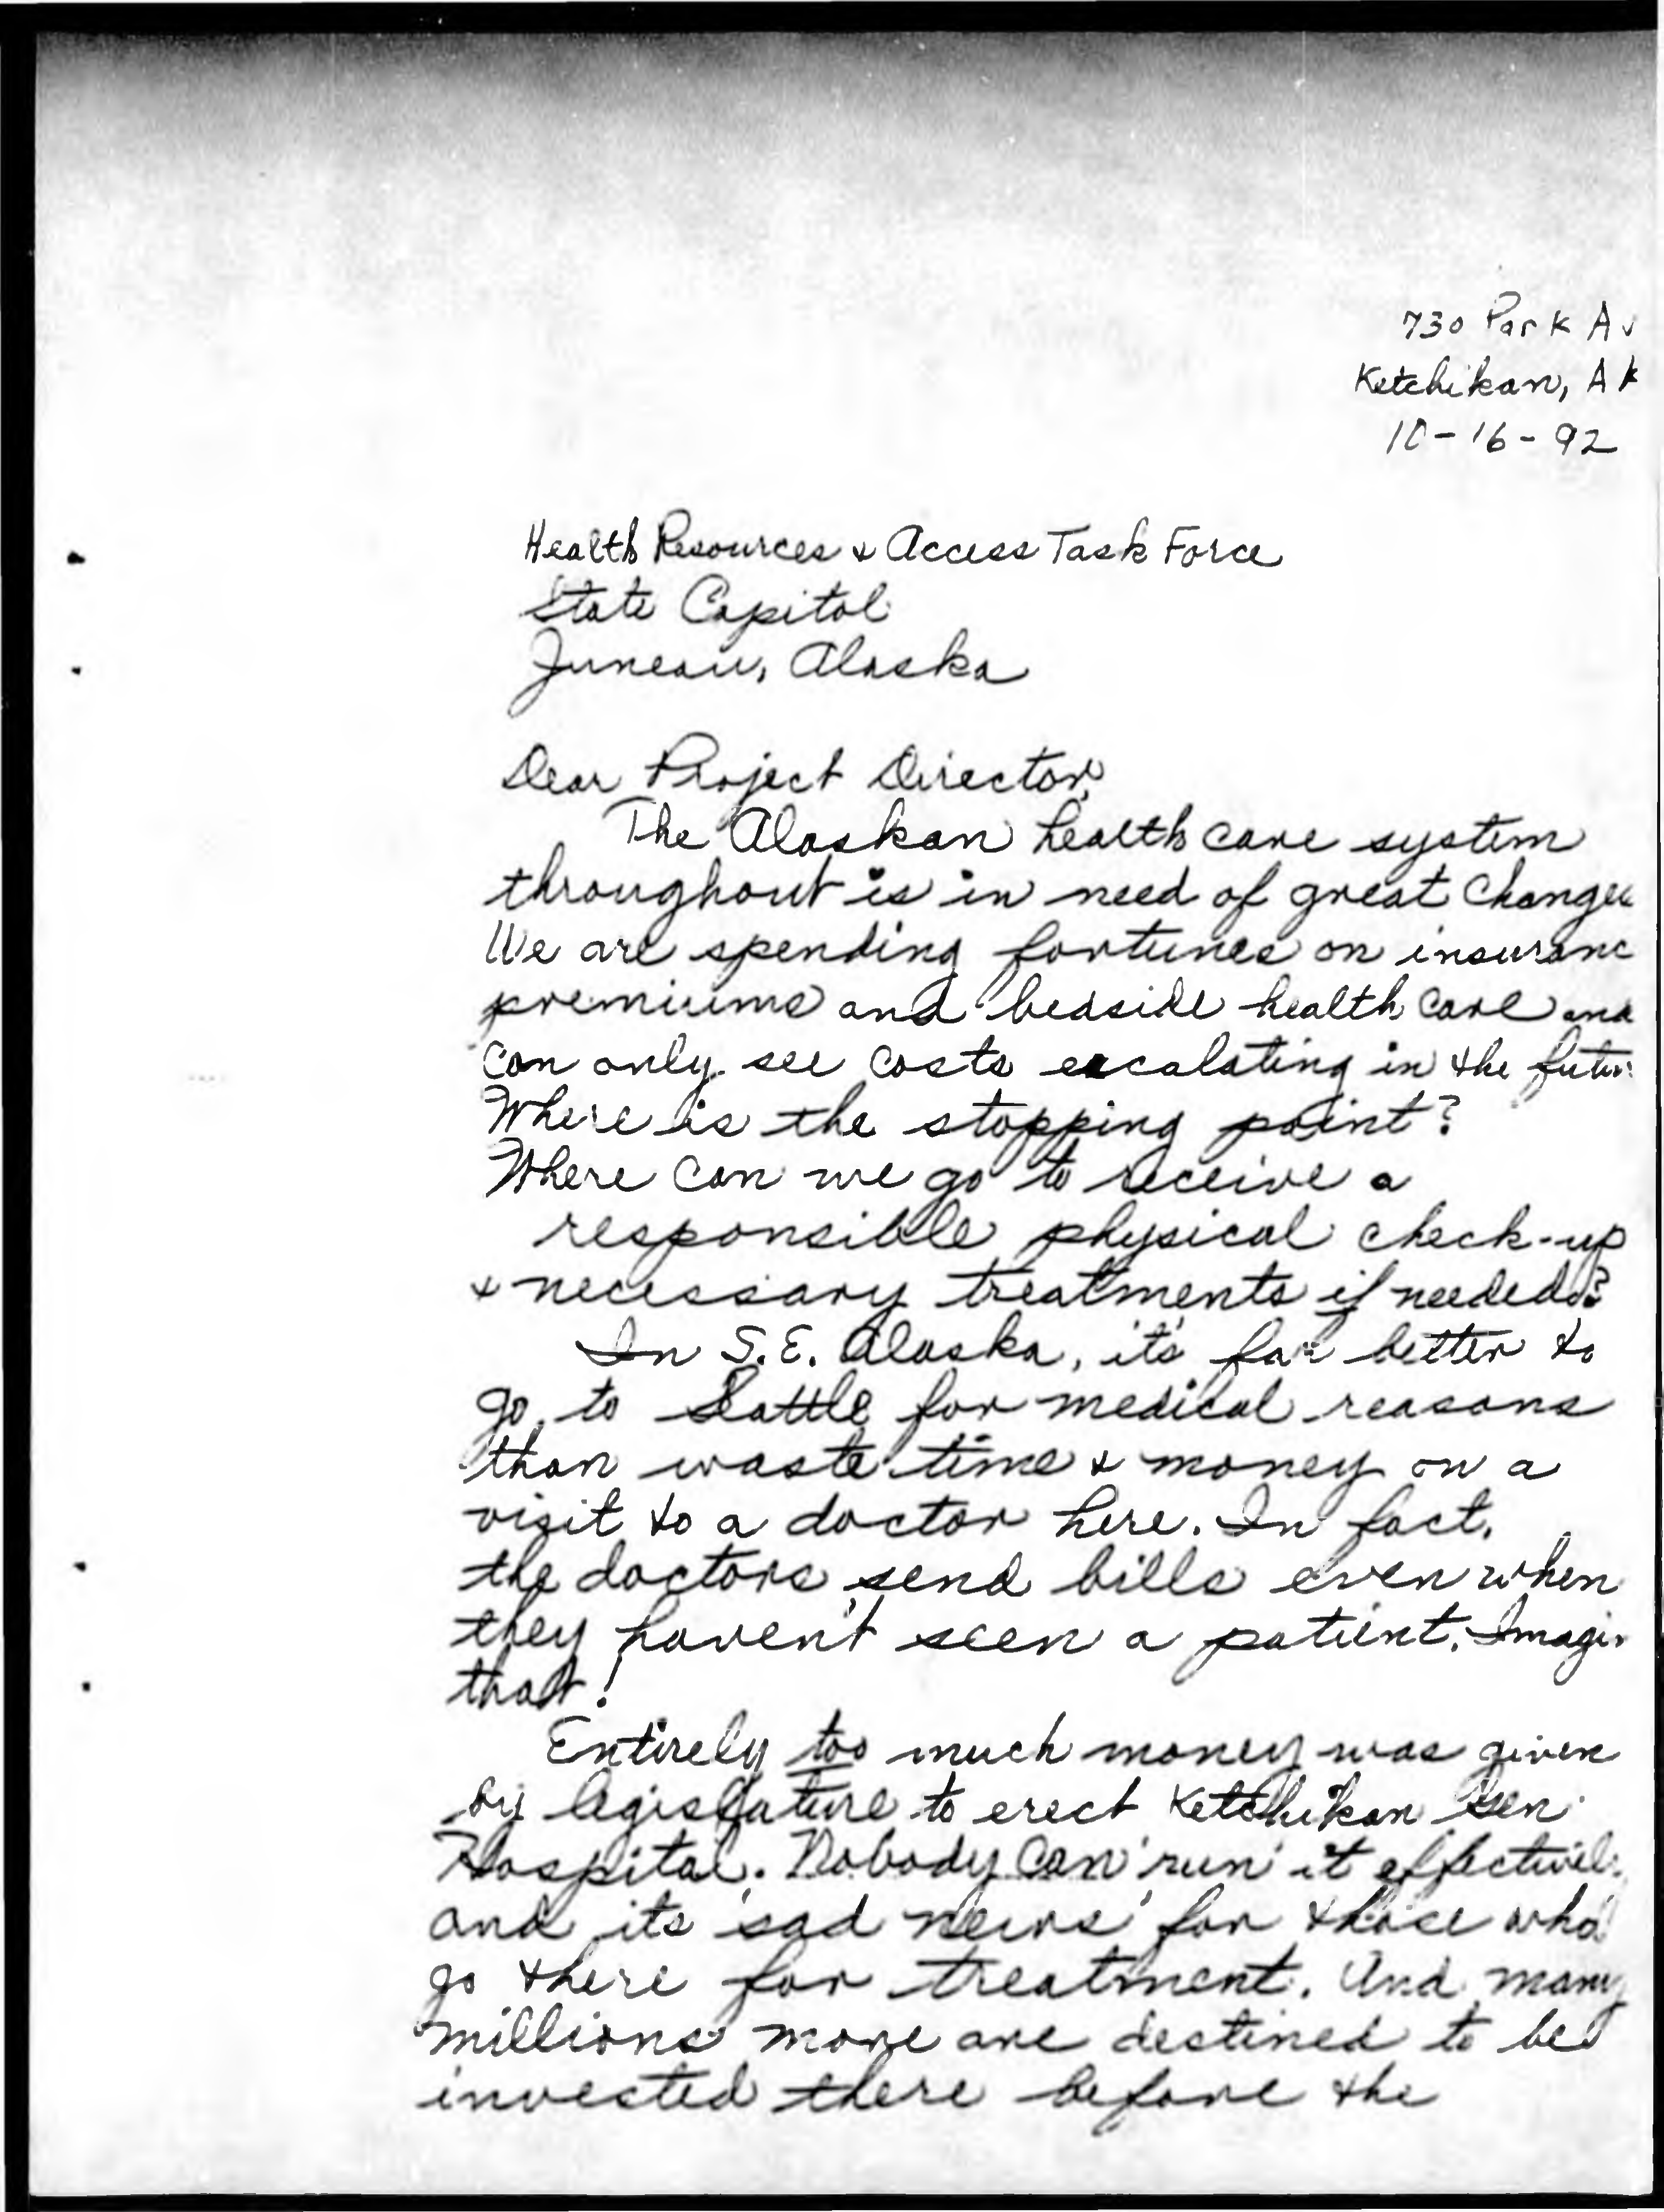 730 Park Av
Ketchikan, Ak
10-16-92
Health Resources & Access Task Force
State Capitol
Juneau, Alaska
Dear Project Director,
The Alaskan health care system
throughout is in need of great change
We are spending fortunes on insuranc
premiums and bedside health care and
can only see costs escalating in the futur
Where is the stopping point?
Where can we go to receive a
responsible physical check-up
& necessary treatments if needed?
In S.E. Alaska, it's far better to
go to Seattle for medical reasons
than waste time & money on a
visit to a doctor here. In fact,
the doctors send bills even when
they haven't seen a patient. Imagin
that!
Entirely too much money was given
by legislature to erect Ketchikan Gen
Hospital. Nobody can 'run' it effectively
and its 'sad news' for those who
go there for treatment. And many
millions more are destined to be
invested there before the